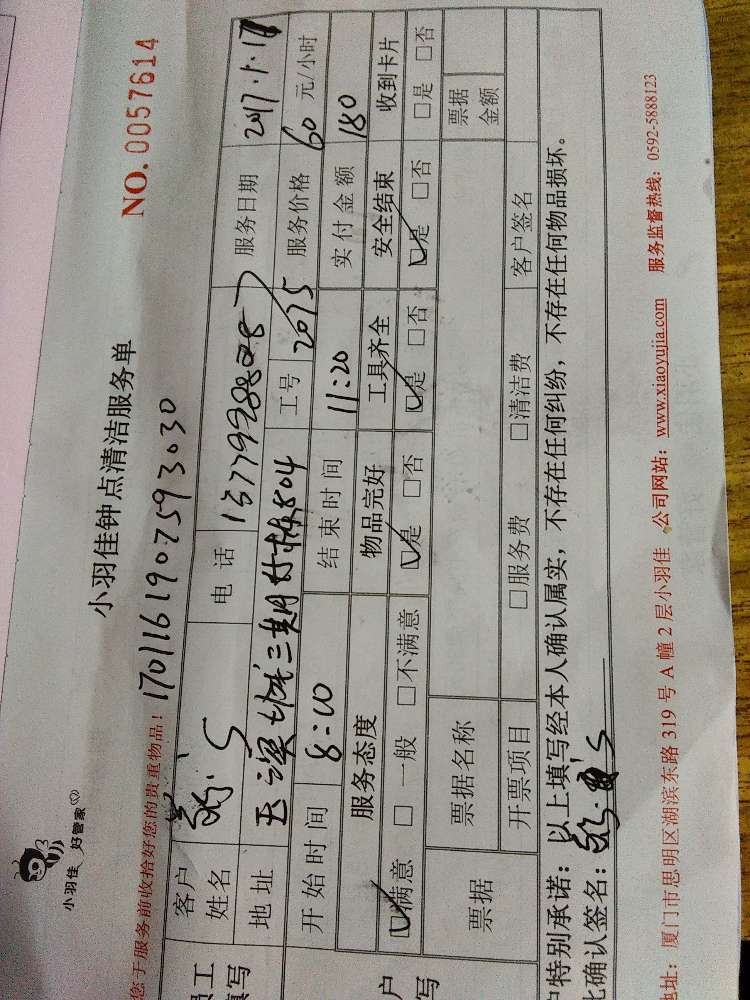 小羽佳 好管家
小羽佳钟点清洁服务单
NO.0057614
您于服务前收拾好您的贵重物品！
1701161907593030
客户姓名 电话 服务日期 2017.1.17
地址 804 工号 2075 服务价格 60 元/小时
开始时间 8:20 结束时间 11:20 实付金额 180
服务态度 物品完好 工具齐全 安全结束 收到卡片
☑满意 □一般 □不满意 ☑是 □否 ☑是 □否 ☑是 □否 □是 □否
票据 票据名称 票据金额
开票项目 □服务费 □清洁费 客户签名
户特别承诺：以上填写经本人确认属实，不存在任何纠纷，不存在任何物品损坏。
比确认签名：
地址：厦门市思明区湖滨东路 319 号 A 幢 2 层小羽佳 公司网站：www.xiaoyujia.com 服务监督热线：0592-5888123